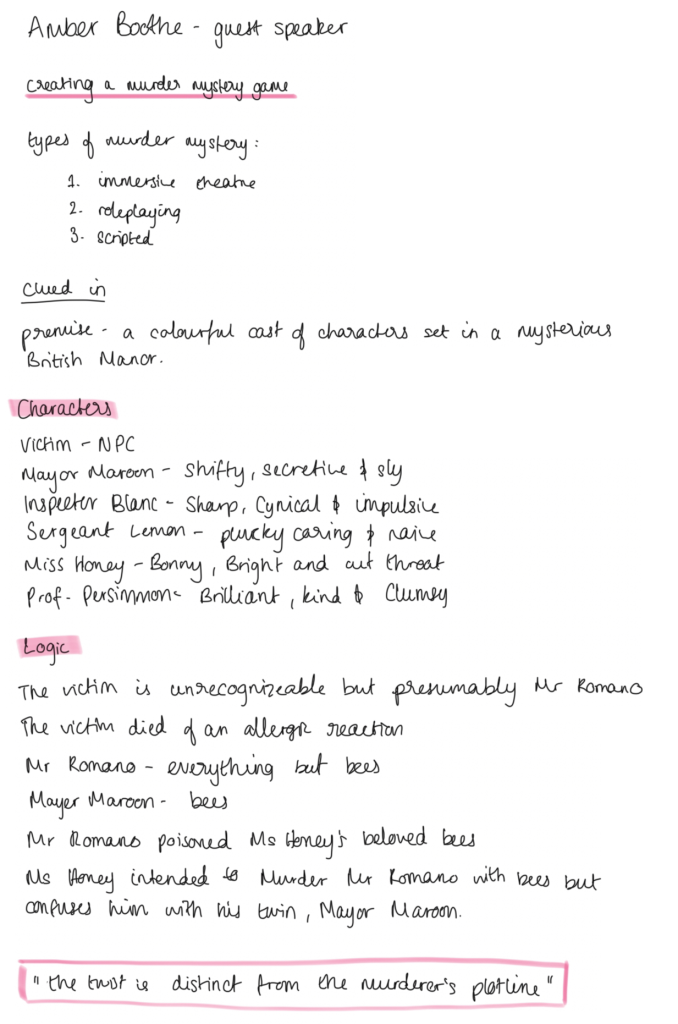 Amber Boothe - guest speaker
creating a murder mystery game
types of murder mystery:
1. immersive theatre
2. roleplaying
3. scripted
Clued in
premise - a colourful cast of characters set in a mysterious
British Manor.
Characters
Victim - NPC
Mayor Maroon - shifty, secretive & sly
Inspector Blanc - Sharp, Cynical & impulsive
Sergeant Lemon - plucky caring & naive
Miss Honey - Bonny, Bright and cut throat
Prof. Persimmon - Brilliant, kind & Clumsy
Logic
The victim is unrecognizeable but presumably Mr Romano
The victim died of an allergic reaction
Mr Romano - everything but bees
Mayer Maroon - bees
Mr Romano poisoned Ms Honey's beloved bees
Ms Honey intended to Murder Mr Romano with bees but
confuses him with his twin, Mayor Maroon.
"the twist is distinct from the murderer's plotline"